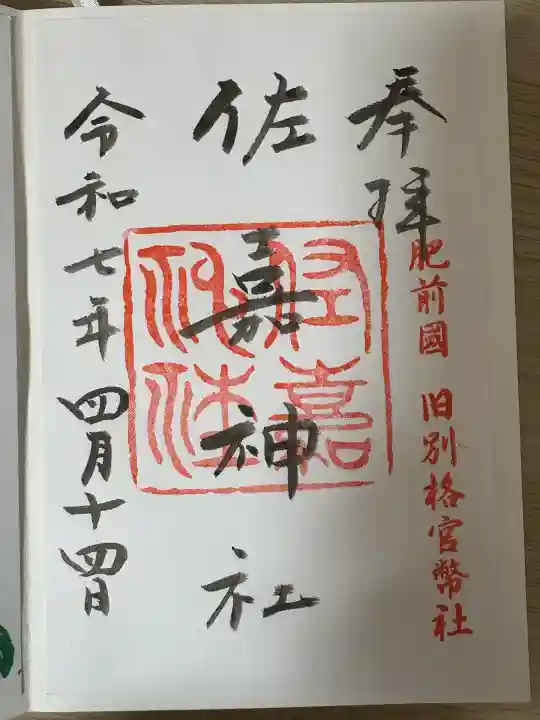 奉拝
肥前國 旧別格官幣社
佐嘉神社
佐嘉
神社
令和七年四月十四日